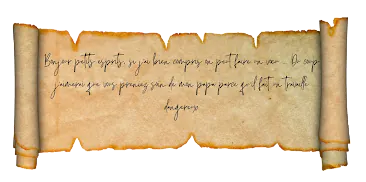 Bonjour petits esprits, si j'ai bien compris on peut faire un vœu... Du coup
j'aimerai que vous preniez soin de mon papa parce qu'il fait un travaille
dangereux